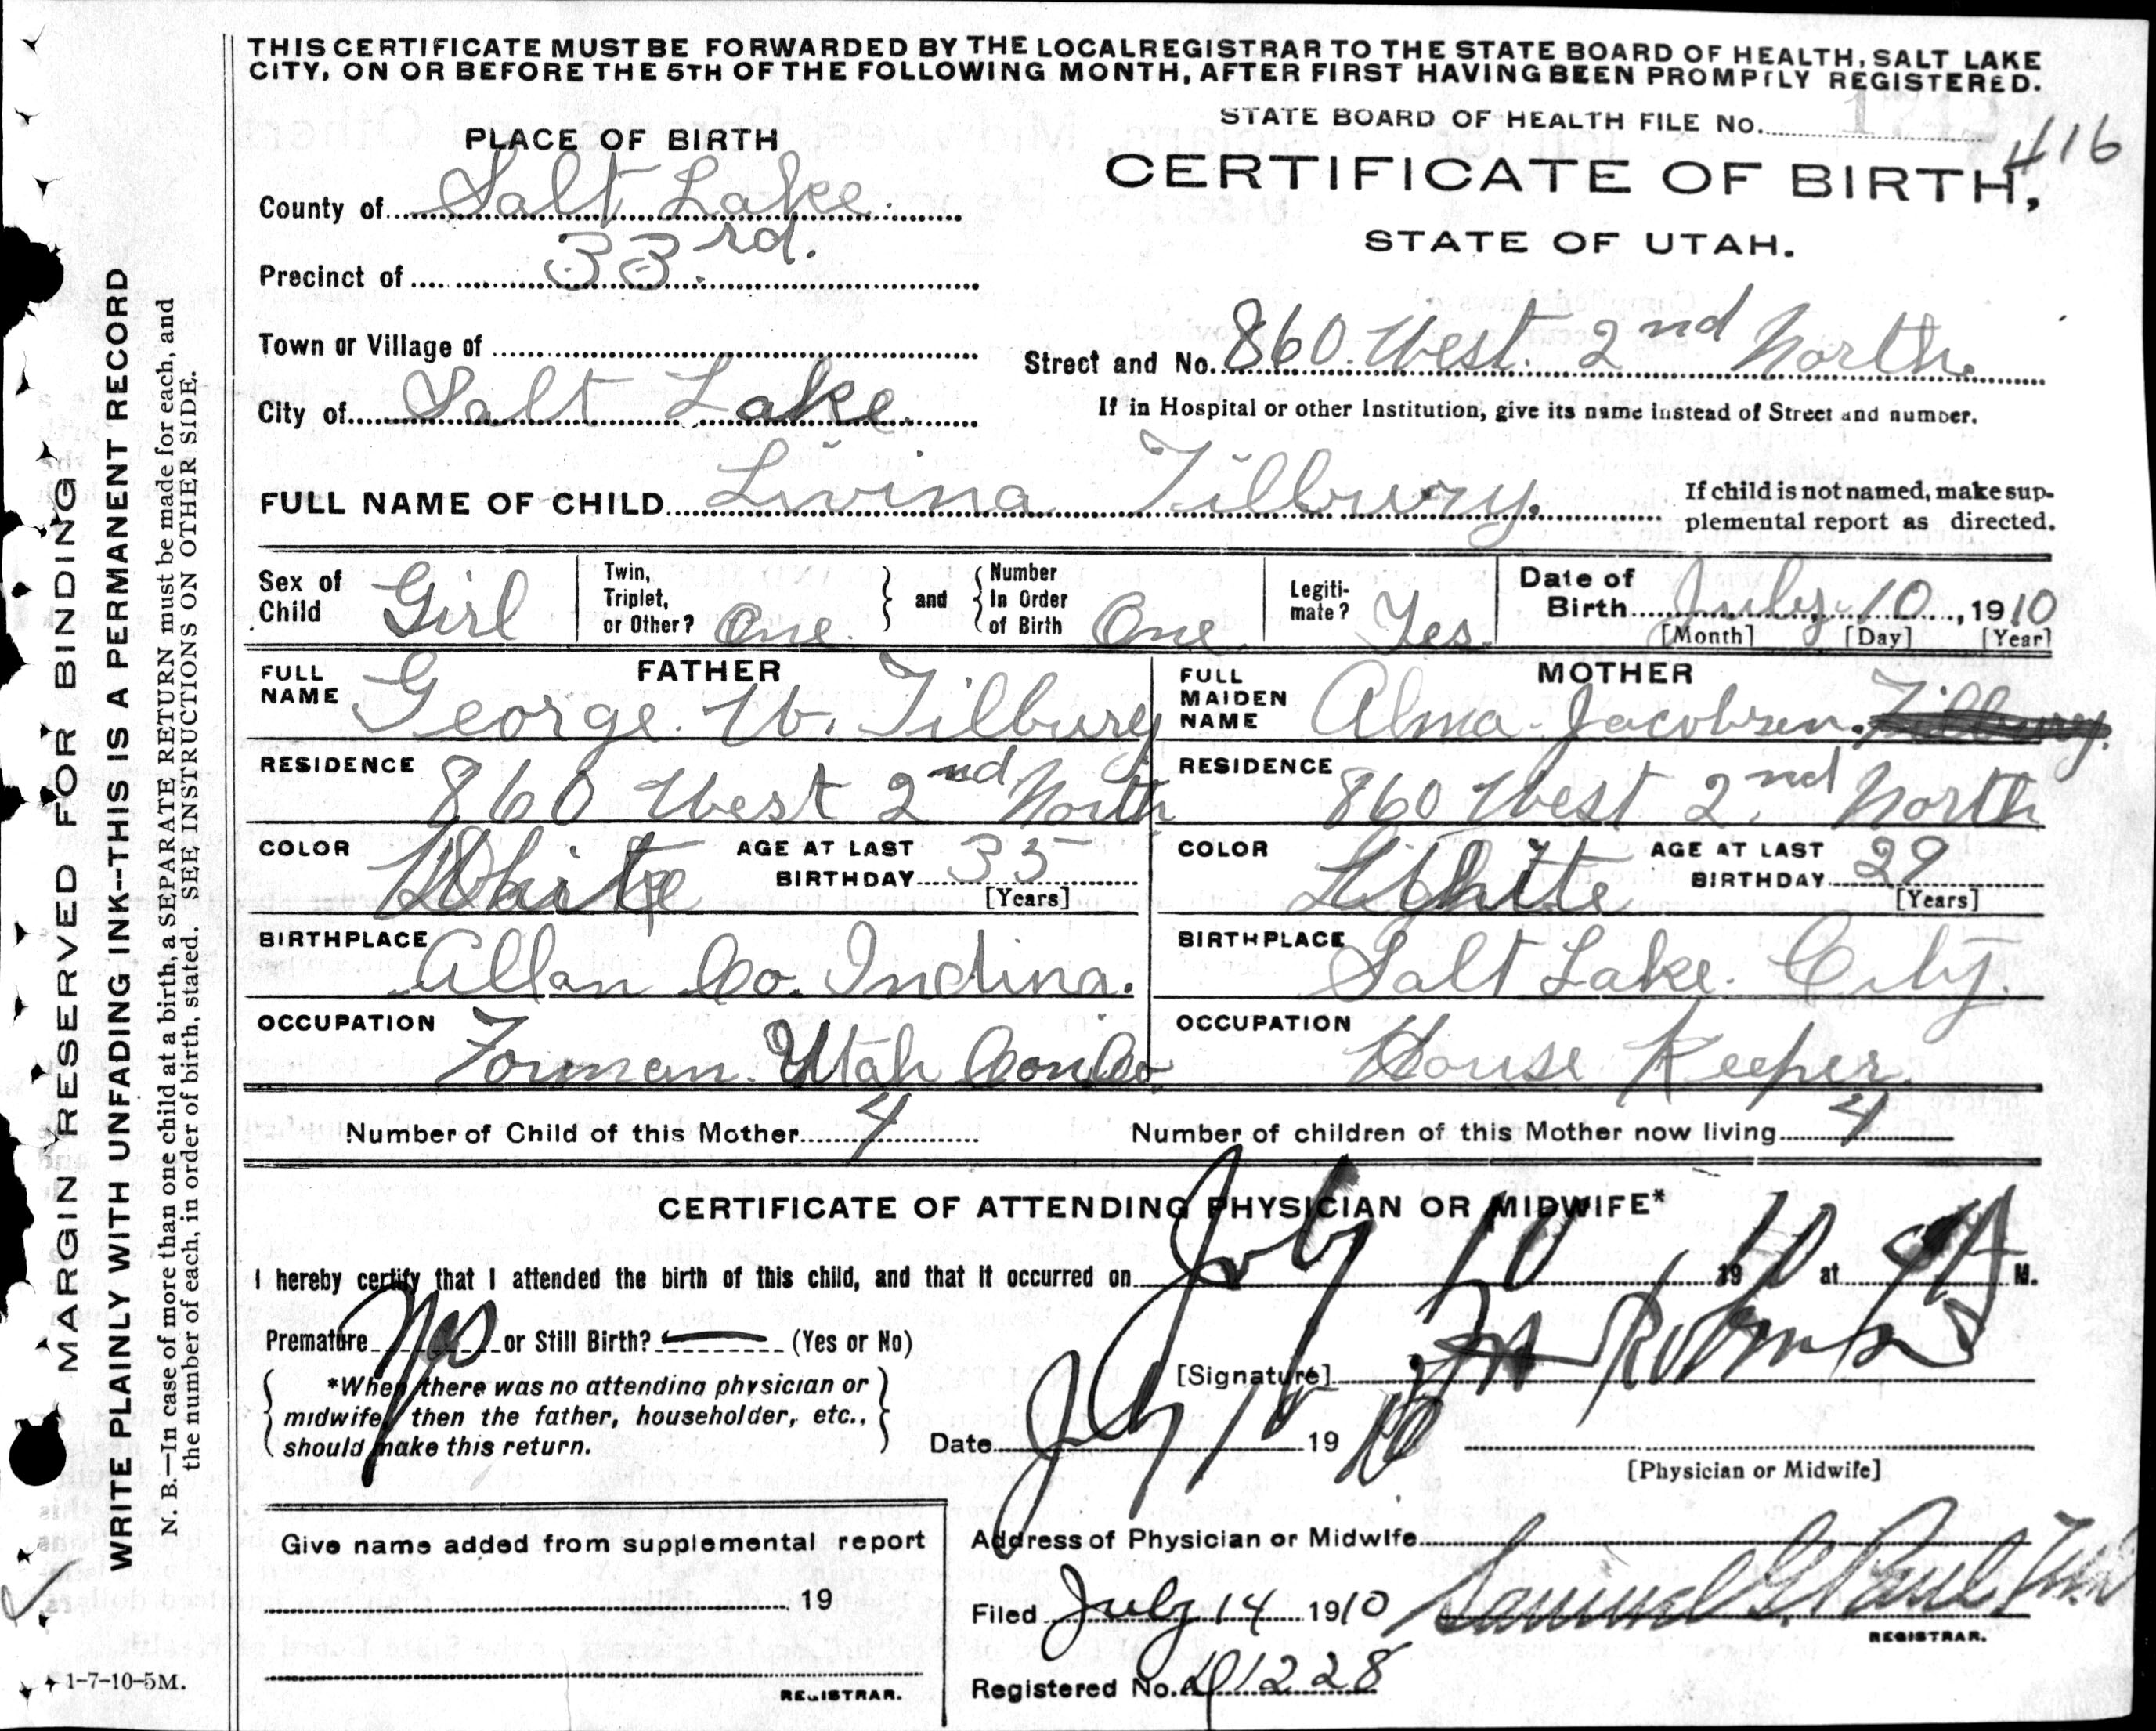 THIS CERTIFICATE MUST BE FORWARDED BY THE LOCAL REGISTRAR TO THE STATE BOARD OF HEALTH, SALT LAKE
CITY, ON OR BEFORE THE 5TH OF THE FOLLOWING MONTH, AFTER FIRST HAVING BEEN PROMPTLY REGISTERED.
STATE BOARD OF HEALTH FILE No.
416
PLACE OF BIRTH
CERTIFICATE OF BIRTH,
STATE OF UTAH.
County of Salt Lake.
Precinct of 33rd.
Town or Village of
Street and No. 860. West. 2nd North.
City of Salt Lake.
If in Hospital or other Institution, give its name instead of Street and number.
FULL NAME OF CHILD Livina Tilbury.
If child is not named, make sup-
plemental report as directed.
Sex of Child Girl
Twin, Triplet, or Other? One.
and
Number In Order of Birth One
Legiti-mate? Yes.
Date of Birth July 10, 1910
[Month] [Day] [Year]
FATHER
FULL NAME George. W. Tilbury
RESIDENCE 860 West 2nd North
COLOR White
AGE AT LAST BIRTHDAY 35
[Years]
BIRTHPLACE Allan Co. Indina.
OCCUPATION Forman. Utah Con Co
MOTHER
FULL MAIDEN NAME Alma Jacobsen. Tilbury.
RESIDENCE 860 West 2nd North
COLOR White
AGE AT LAST BIRTHDAY 29
[Years]
BIRTHPLACE Salt Lake. City.
OCCUPATION House Keeper.
Number of Child of this Mother 4
Number of children of this Mother now living 4
CERTIFICATE OF ATTENDING PHYSICIAN OR MIDWIFE*
I hereby certify that I attended the birth of this child, and that it occurred on July 10, 1910 at M.
Premature or Still Birth? (Yes or No)
*When there was no attending physician or
midwife, then the father, householder, etc.,
should make this return.
[Signature]
Date July 1910
[Physician or Midwife]
Give name added from supplemental report
19
REGISTRAR.
Address of Physician or Midwife
Filed July 14 1910 Samuel G. Paul
REGISTRAR.
Registered No. 1228
1-7-10-5M.
MARGIN RESERVED FOR BINDING
WRITE PLAINLY WITH UNFADING INK--THIS IS A PERMANENT RECORD
N. B.—In case of more than one child at a birth, a SEPARATE RETURN must be made for each, and
the number of each, in order of birth, stated. SEE INSTRUCTIONS ON OTHER SIDE.